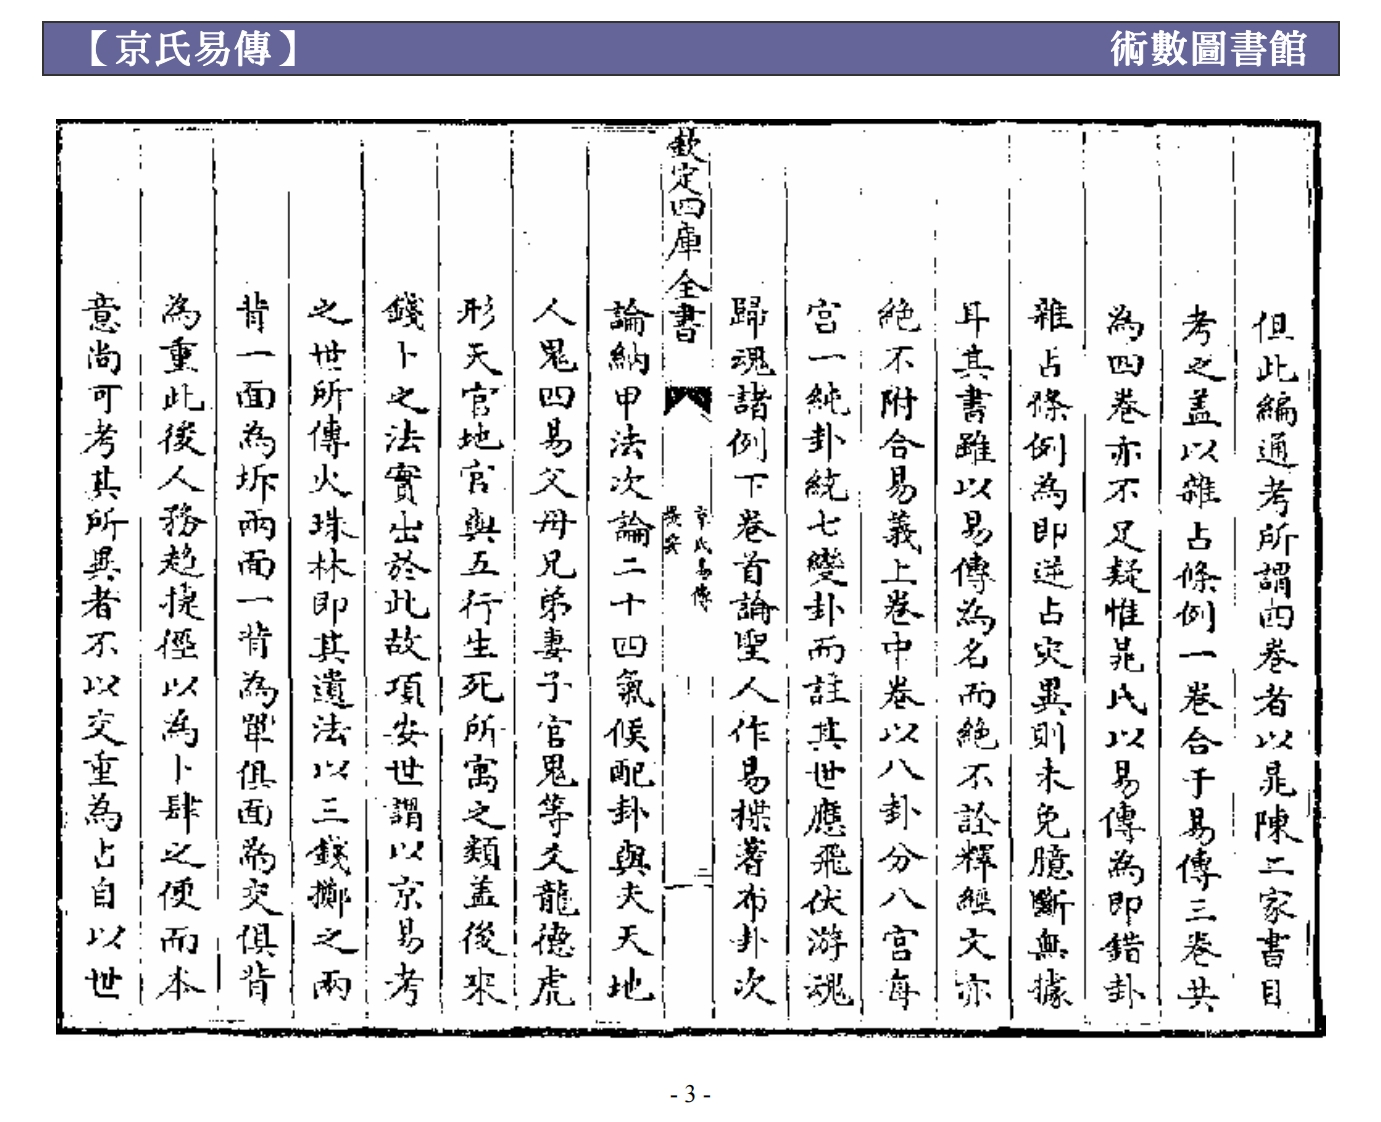 【京氏易傳】 術數圖書館
但此編通考所謂四卷者以晁陳二家書目
考之蓋以雜占條例一卷合于易傳三卷共
為四卷亦不足疑惟晁氏以易傳為即錯卦
雜占條例為即逆占灾異則未免臆斷無據
耳其書雖以易傳為名而絶不詮釋經文亦
絶不附合易義上卷中卷以八卦分八宫每
宫一純卦統七變卦而註其世應飛伏游魂
歸魂諸例下卷首論聖人作易揲蓍布卦次
欽定四庫全書
京氏易傳
提要
二
論納甲法次論二十四氣候配卦與夫天地
人鬼四易父母兄弟妻子官鬼等爻龍德虎
形天官地官與五行生死所寓之類蓋後來
錢卜之法實出於此故項安世謂以京易考
之世所傳火珠林即其遺法以三錢擲之兩
背一面為坼兩面一背為單俱面為交俱背
為重此後人務趋捷徑以為卜肆之便而本
意尚可考其所異者不以交重為占自以世
- 3 -